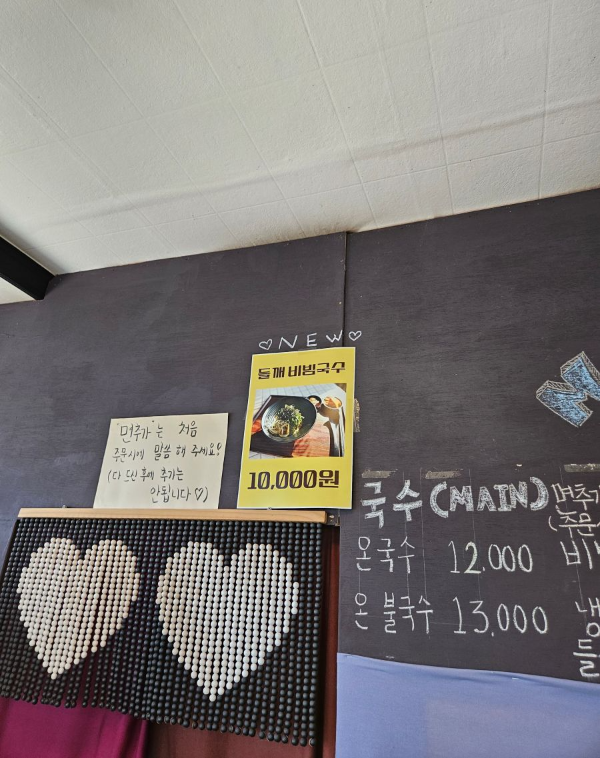 ♡NEW♡
들깨 비빔국수
10,000원
"면추가"는 처음
주문시에 말씀 해 주세요!
(다 드신 후에 추가는
안됩니다♡)
국수(MAIN)
온국수 12.000
온 불국수 13.000
면추가
(주문
비
냉
들